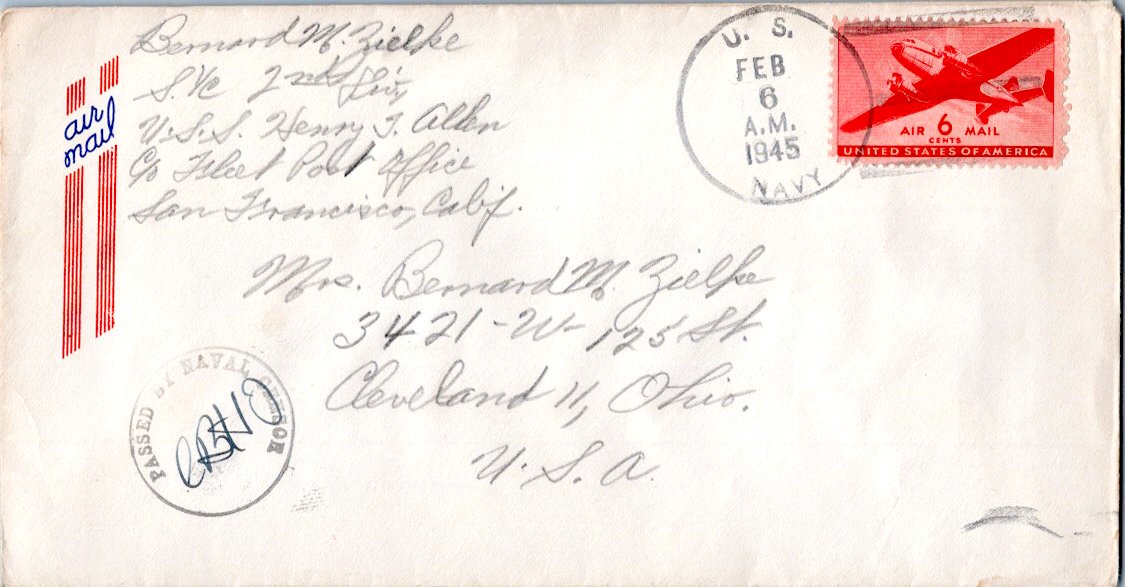 Bernard M. Zielke
S. 1/c 2nd Div.
U.S.S. Henry T. Allen
C/o Fleet Post Office
San Francisco, Calif.
air
mail
U. S.
FEB
6
A.M.
1945
NAVY
AIR 6 MAIL
CENTS
UNITED STATES OF AMERICA
Mrs. Bernard M. Zielke
3421-W-125 St.
Cleveland 11, Ohio.
U. S. A.
PASSED BY NAVAL CENSOR